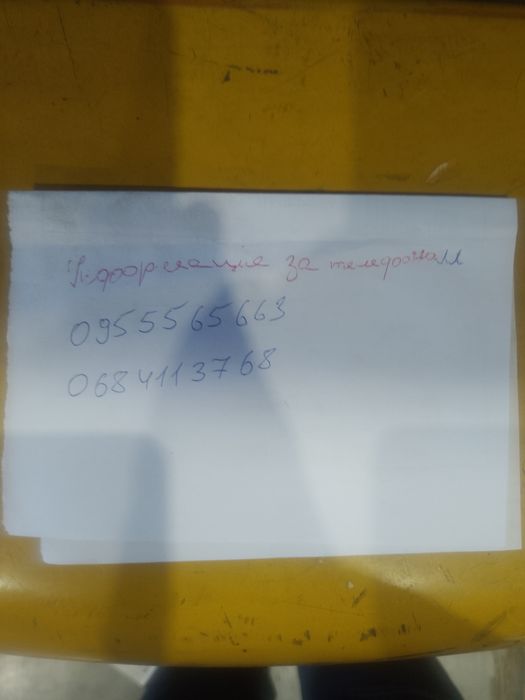 Інформація за телефонами
0955565663
0684113768